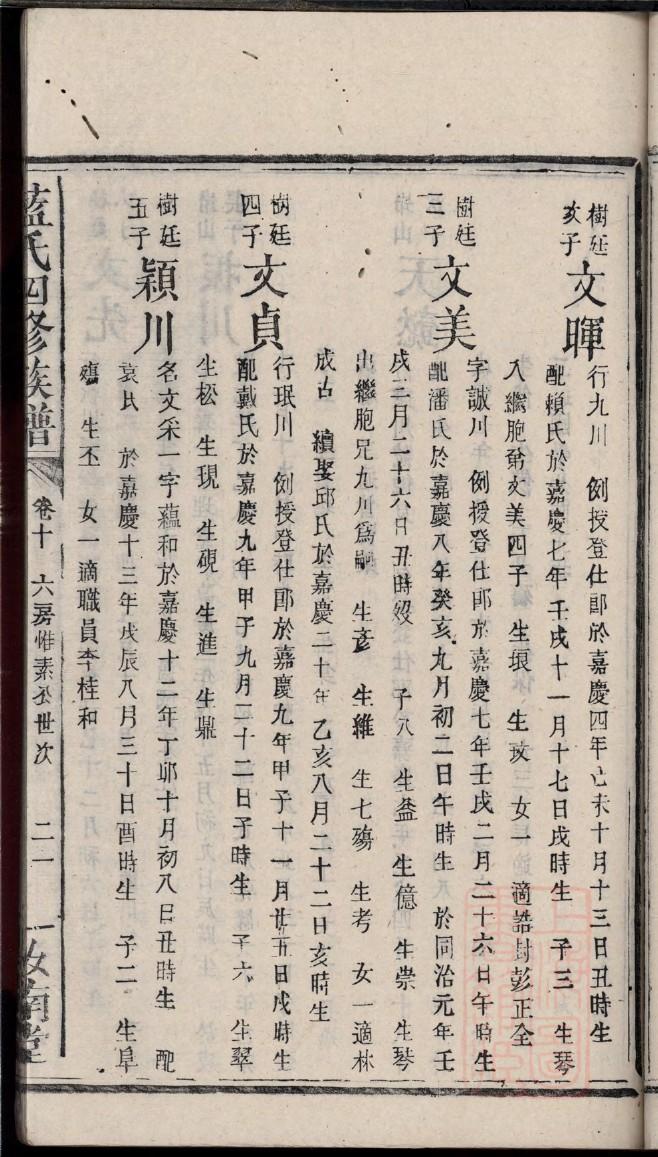 樹廷
亥子
文暉
行九川 例授登仕郎於嘉慶四年己未十月十三日丑時生
配賴氏於嘉慶七年壬戌十一月十七日戌時生 子三 生琴
入繼胞弟文美四子 生 生 女一適誥封彭正全
樹廷
三子
文美
字誠川 例授登仕郎於嘉慶七年壬戌二月二十六日午時生
配潘氏於嘉慶八年癸亥九月初二日午時生 於同治元年壬
戌三月二十六日丑時歿 子八 生益 生億 生崇 生琴
出繼胞兄九川為嗣 生彥 生維 生七殤 生考 女一適林
成古 續娶邱氏於嘉慶二十年乙亥八月二十二日亥時生
樹廷
四子
文貞
行珉川 例授登仕郎於嘉慶九年甲子十一月廿五日戌時生
配戴氏於嘉慶九年甲子九月二十二日子時生 子六 生翠
生松 生現 生硯 生進 生鼎
樹廷
五子
穎川
名文采一字蘊和於嘉慶十二年丁卯十月初八日丑時生 配
袁氏 於嘉慶十三年戊辰八月三十日酉時生 子二 生阜
殤 生丕 女一適職員李桂和
藍氏四修族譜
卷十 六房惟素公世次
二一
汝南堂